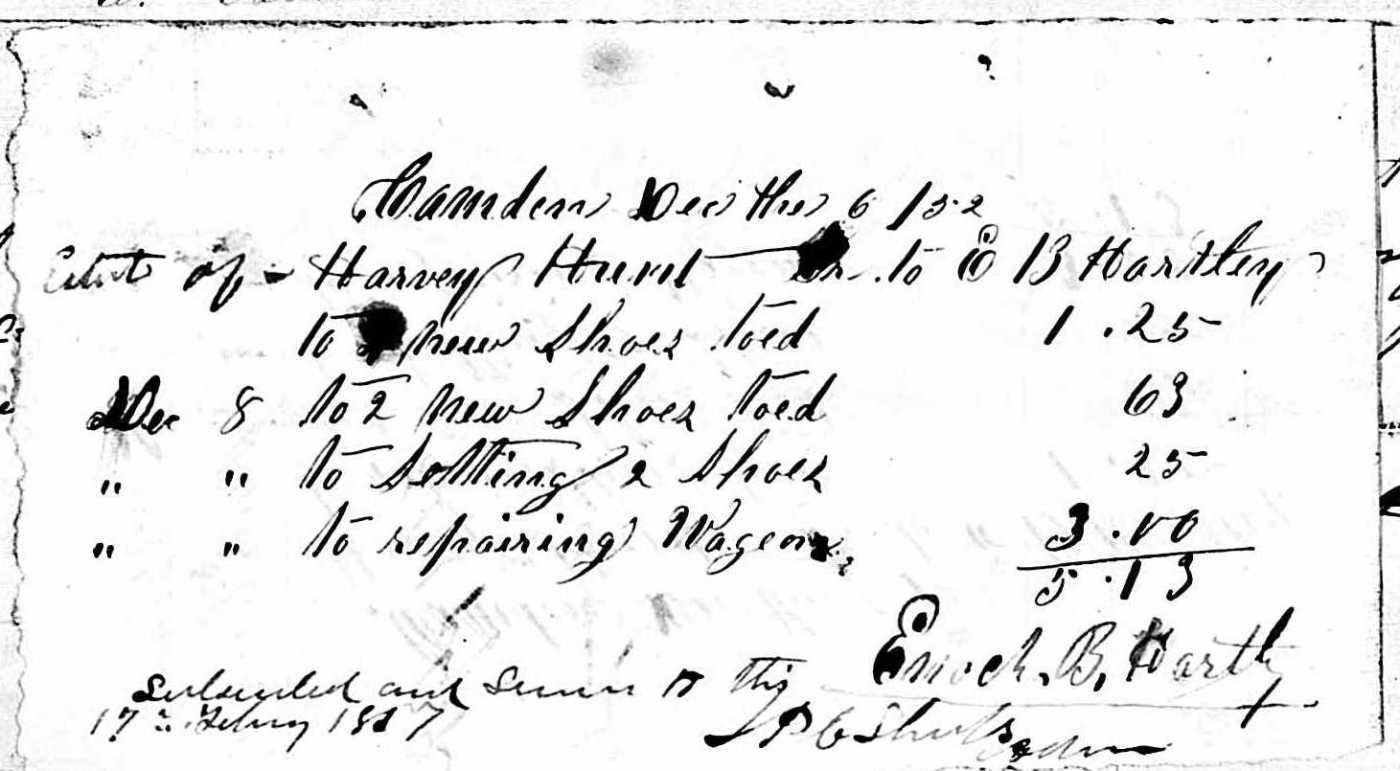 Camden Dec the 6 152
Estat of - Harvey Hunt Dr to E B Hartley
to new Shoes toed 1.25
Dec 8 to 2 new Shoes toed 63
" " to Setting 2 Shoes 25
" " to repairing Wagon 3.00
5.13
Enoch. B. Hartly
and to this
17